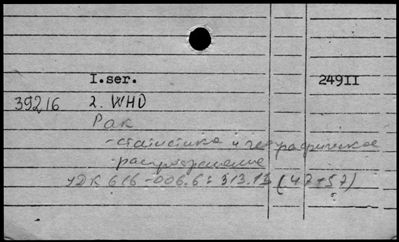 I.ser. 24911
39216 2. WHO
Рак
-статистика и географическое
-распространение
УДК 616-006.6:313.13 (47+57)